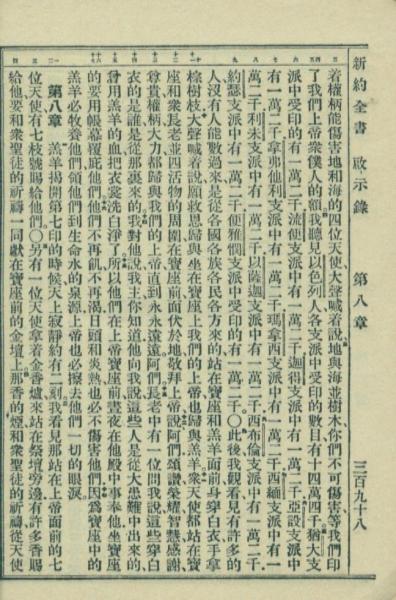 新約全書 啟示錄 第八章 三百九十八
着權柄能傷害地和海的四位天使、大聲喊着說、地與海並樹木、你們不可傷害、等我們印
了我們上帝衆僕人的額我聽見以色列人各支派中受印的數目有十四萬四千猶大支
派中受印的有一萬二千流便支派中有一萬二千迦得支派中有一萬二千亞設支派中
有一萬二千拿弗他利支派中有一萬二千瑪拿西支派中有一萬二千西緬支派中有一
萬二千利未支派中有一萬二千以薩迦支派中有一萬二千西布倫支派中有一萬二千
約瑟支派中有一萬二千便雅憫支派中受印的有一萬二千〇此後我觀看見有許多的
人沒有人能數過來是從各國各族各民各方來的站在寶座和羔羊面前身穿白衣手拿
棕樹枝大聲喊着說願救恩歸與坐在寶座上我們的上帝也歸與羔羊衆天使都站在寶
座和衆長老並四活物的周圍在寶座前面伏於地敬拜上帝說阿們頌讚榮耀智慧感謝
尊貴權柄大力都歸與我們的上帝直到永永遠遠阿們長老中有一位問我說這些穿白
衣的是誰是從那裏來的我對他說我主你知道他向我說這些人是從大患難中出來的
曾用羔羊的血把衣裳洗白淨了所以他們在上帝寶座前晝夜在他殿中事奉他坐寶座
的要用帳幕覆庇他們他們不再飢不再渴日頭和炎熱也必不傷害他們因爲寶座中的
羔羊必牧養他們領他們到生命水的泉源上帝也必擦去他們一切的眼淚
第八章 羔羊揭開第七印的時候天上寂靜約有二刻我看見那站在上帝面前的七
位天使有七枝號賜給他們〇另有一位天使拿着金香爐來站在祭壇旁邊有許多香賜
給他要和衆聖徒的祈禱一同獻在寶座前的金壇上那香的煙和衆聖徒的祈禱從天使